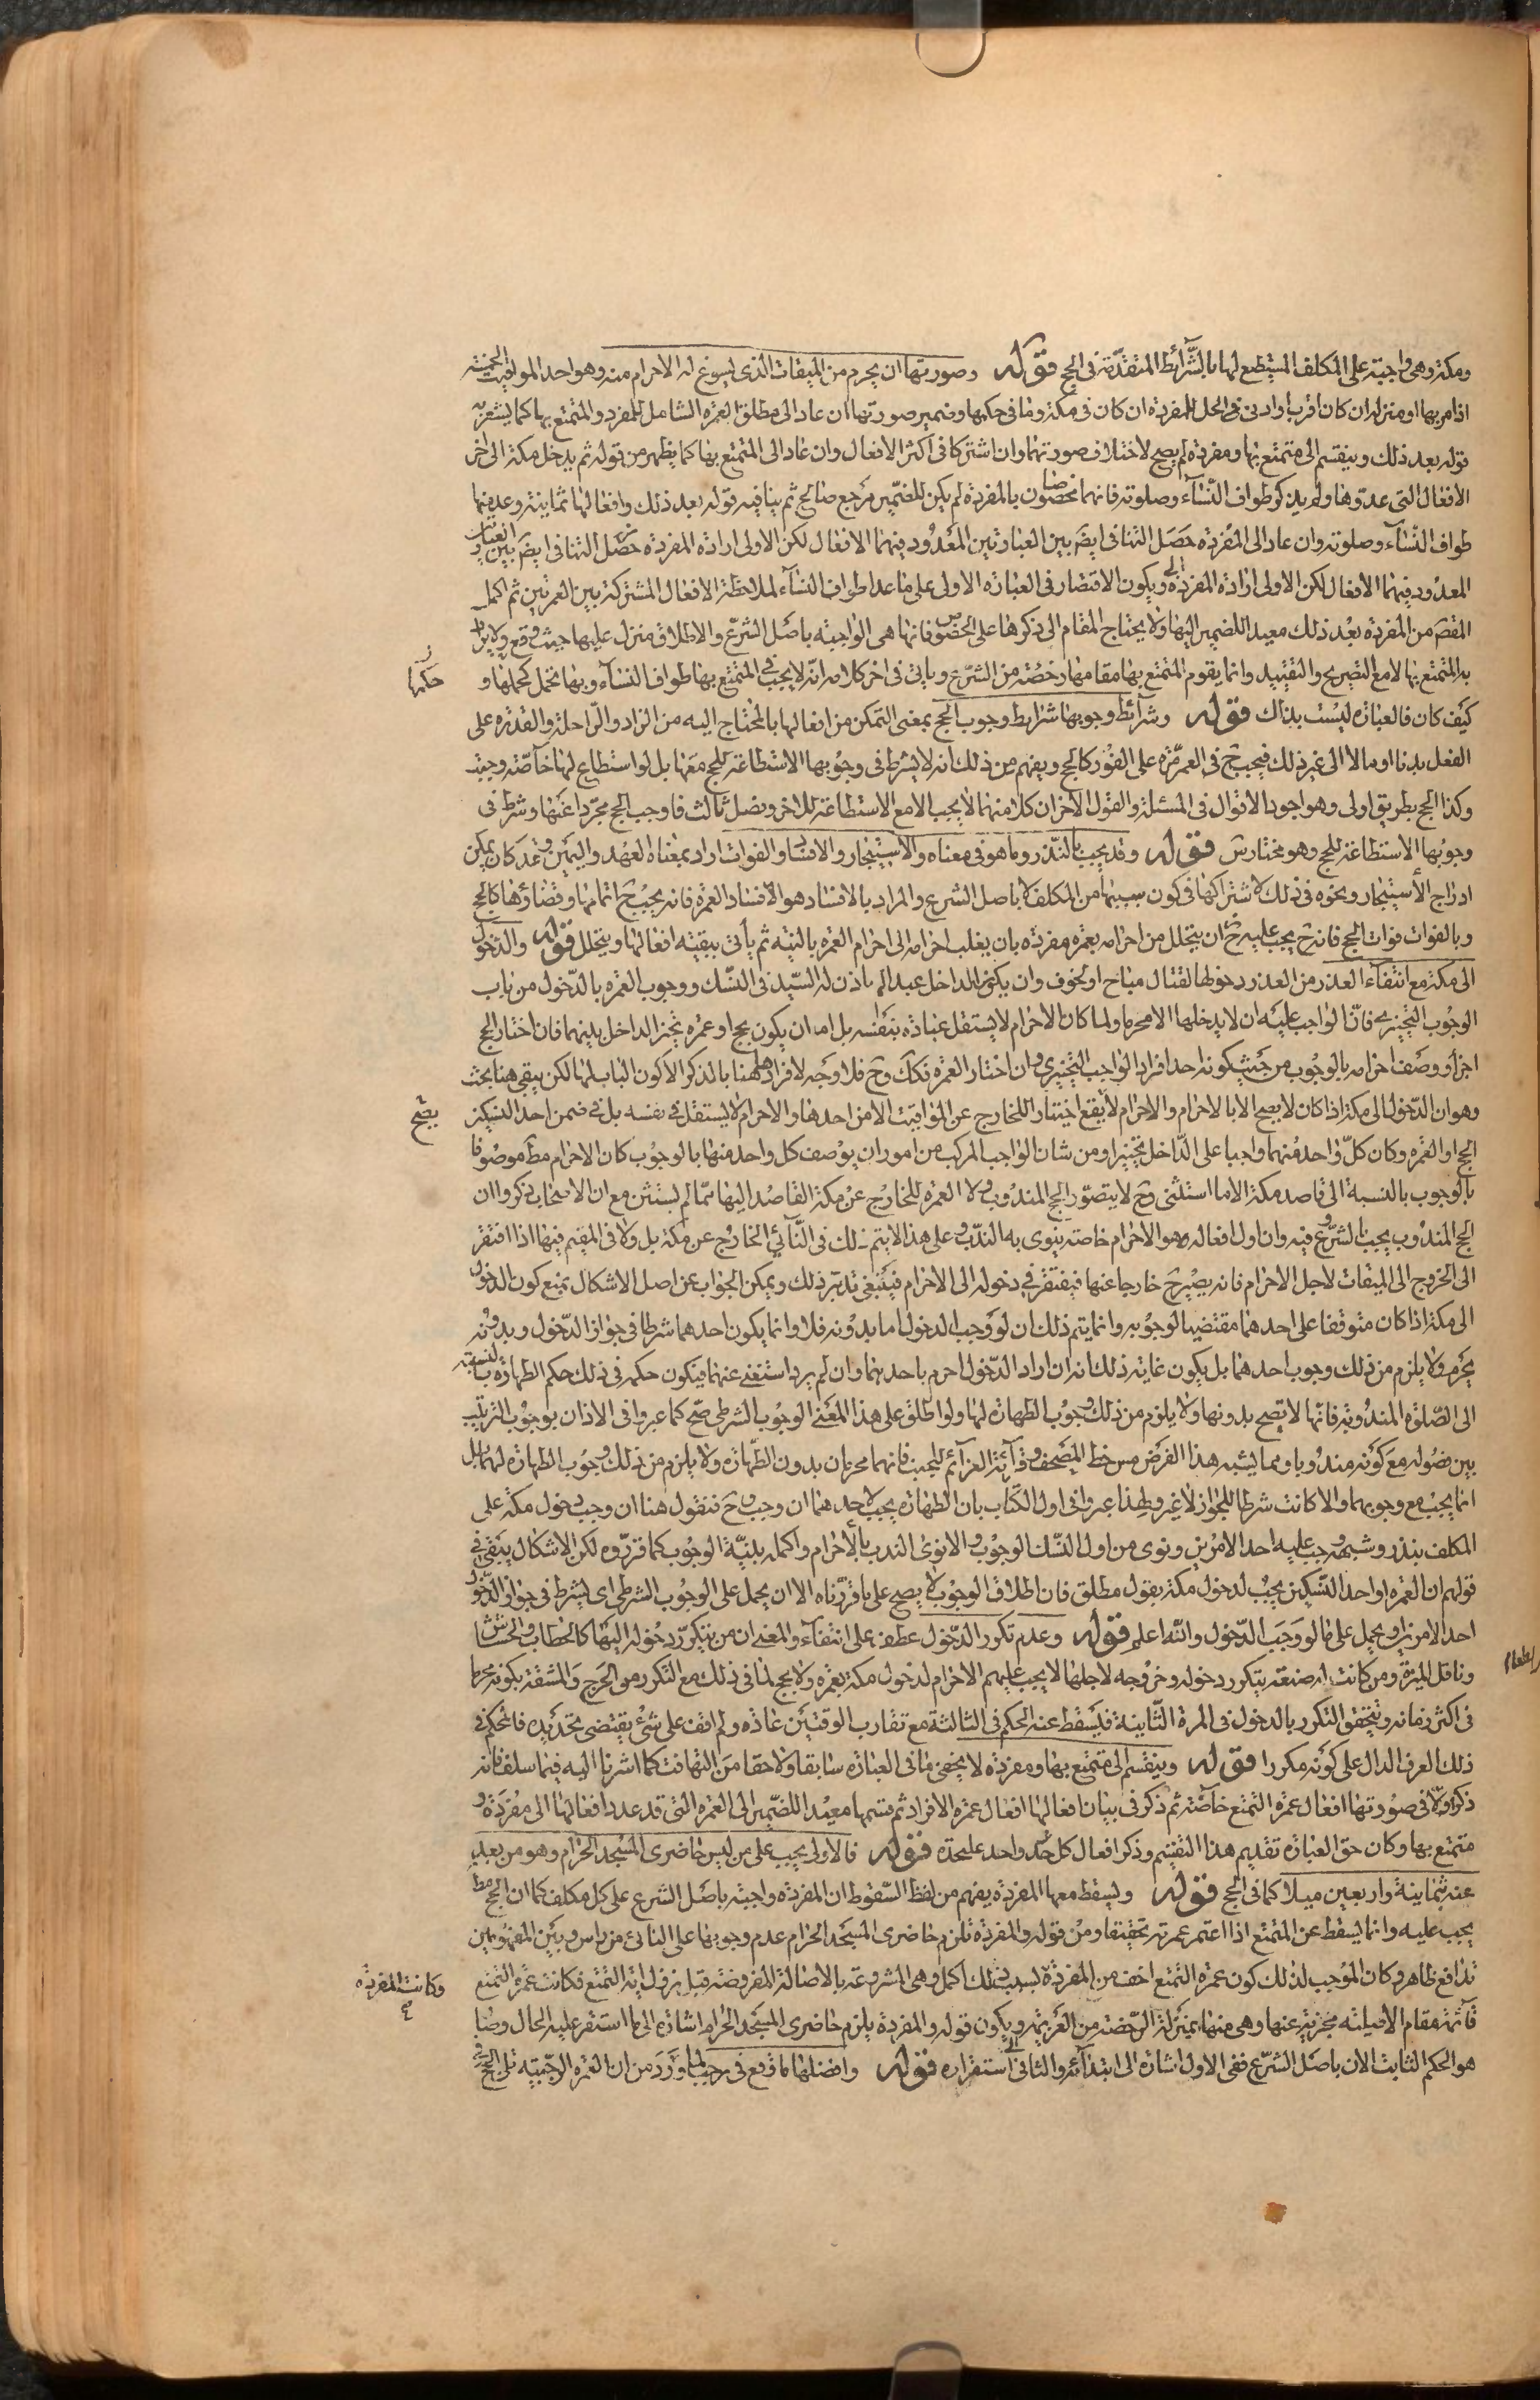 ومكة وهى واجبة على المكلف المستطيع لها بالشرائط المتقدمة فى الحج قوله وصورتها ان يحرم من الميقات الذى يسوغ له الاحرام منه وهو احد المواقيت الخمسة
اذا مر بها او منزله ان كان اقرب او ادنى الحل للمفردة ان كان فى مكة وما فى حكمها وضمير صورتها ان عاد الى مطلق العمرة الشامل للمفرد والمتمتع بها كما يشعر به
قوله بعد ذلك وينقسم الى متمتع بها ومفردة لم يصح لاختلاف صورتهما وان اشتركا فى اكثر الافعال وان عاد الى المتمتع بها كما يظهر من قوله ثم يدخل مكة الى اخر
الافعال التى عدوها ولم يذكر طواف النساء وصلوته فانهما مخصوصان بالمفردة لم يكن للضمير مرجع صالح ثم ينافيه قوله بعد ذلك وافعالها ثمانية وعد منها
طواف النساء وصلوته وان عاد الى المفردة حصل التنافى ايضا بين العبارتين المعدود فيهما الافعال لكن الاولى ارادة المفردة حصل التنافى ايضا بين العبارتين
المعدود فيهما الافعال لكن الاولى ارادة المفردة ويكون الاقتصار فى العبارة الاولى على ما عدا طواف النساء لملاحظة الافعال المشتركة بين العمرتين ثم اكمل
المقصر من المفردة بعد ذلك معيدا للضمير اليها ولا يحتاج المقام الى ذكرها على الخصوص فانها هى الواجبة باصل الشرع والاطلاق منزل عليها حيث وقع ولا يراد
به المتمتع بها الا مع التصريح والتقييد وانما يقوم المتمتع بها مقامها رخصة من الشرع وياتى فى اخر كلامه انه لا يجب فى المتمتع بها طواف النساء وبها تحمل كجملها و
حكمها
كيف كان فالعبارة ليست بذاك قوله وشرائط وجوبها شرايط وجوب الحج بمعنى التمكن من افعالها بالمحتاج اليه من الزاد والراحلة والقدرة على
الفعل بدنا او مالا الى غير ذلك فيجب ح فى العمر مرة على الفور كالحج ويفهم من ذلك انه لا يشترط فى وجوبها الاستطاعة للحج معها بل لو استطاع لها خاصة وجبت
وكذا الحج بطريق اولى وهو اجود الاقوال فى المسئلة والقول الاخر ان كلا منهما لا يجب الا مع الاستطاعة للاخر وفصل ثالث فاوجب الحج مجردا عنها وشرط فى
وجوبها الاستطاعة للحج وهو مختار س قوله وقد يجب بالنذر وما هو فى معناه والاستيجار والافساد والفوات اراد بمعناه العهد واليمين وقد كان يمكن
ادراج الاستيجار ونحوه فى ذلك لاشتراكها فى كون سببها من المكلف لا باصل الشرع والمراد بالافساد هو افساد العمرة فانه يجب ح اتمامها وقضاؤها كالحج
وبالفوات فوات الحج فانه ح يجب عليه ح ان يتحلل من احرامه بعمرة مفردة بان يقلب احرامه الى احرام العمرة بالنية ثم يأتى ببقية افعالها ويتحلل قوله والدخول
الى مكة مع انتفاء العذر من العذر دخولها لقتال مباح او لخوف وان يكون الداخل عبدا لم ياذن له السيد فى النسك ووجوب العمرة بالدخول من باب
الوجوب التخييرى فان الواجب عليه ان لا يدخلها الا محرما ولما كان الاحرام لا يستقل عبادة بنفسه بل لابد ان يكون بحج او عمرة تخير الداخل بينهما فان اختار الحج
اجزأ ووصف احرامه بالوجوب من حيث كونه احد افراد الواجب التخييرى وان اختار العمرة فكك وح فلا وجه لافرادها هنا بالذكر الا كون الباب لها لكن يبقى هنا بحث
وهو ان الدخول الى مكة اذا كان لا يصح الا بالاحرام والاحرام لا يقع اختيارا للخارج عن المواقيت الا من احدها والاحرام لا يستقل فى نفسه بل فى ضمن احد النسكين
يصح
الحج او العمرة وكان كل واحد منهما واجبا على الداخل تخييرا ومن شان الواجب المركب من امور ان يوصف كل واحد منها بالوجوب كان الاحرام مط موصوفا
بالوجوب بالنسبة الى قاصد مكة الا ما استثنى وح لا يتصور الحج المندوب ولا العمرة للخارج عن مكة القاصد اليها مما لم يستثن مع ان الاصحاب ذكروا ان
الحج المندوب يجب بالشروع فيه وان اول افعاله وهو الاحرام خاصة ينوى به الندب وعلى هذا لا يتم ذلك فى النائي الخارج عن مكة بل ولا فى المقيم فيها اذا افتقر
الى الخروج الى الميقات لاجل الاحرام فانه يصير ح خارجا عنها فيفتقر فى دخوله الى الاحرام فينبغى تدبر ذلك ويمكن الجواب عن اصل الاشكال بمنع كون الدخول
الى مكة اذا كان متوقفا على احدهما مقتضيا لوجوبه وانما يتم ذلك ان لو وجب الدخول اما بدونه فلا وانما يكون احدهما شرطا فى جواز الدخول وبدونه
يحرم ولا يلزم من ذلك وجوب احدهما بل يكون غايته ذلك انه ان اراد الدخول احرم باحدهما وان لم يرد استغنى عنهما فيكون حكمه فى ذلك حكم الطهارة بالنسبة
الى الصلوة المندوبة فانها لا تصح بدونها ولا يلزم من ذلك وجوب الطهارة لها ولو اطلق على هذا المعنى الوجوب الشرطى صح كما عبروا فى الاذان بوجوب الترتيب
بين فصوله مع كونه مندوبا ومما يشبه هذا الفرض مس خط المصحف وقرآئة العزآئم لتجب فانهما محرمان بدون الطهارة ولا يلزم من ذلك وجوب الطهارة لهما بل
انما يجب مع وجوبهما والا كانت شرطا للجواز لا غير ولهذا عبروا فى اول الكتاب بان الطهارة يجب لاحدهما ان وجب وح فنقول هنا ان وجب دخول مكة على
المكلف بنذر وشبهه وجب عليه احد الامرين ونوى من اول النسك الوجوب والا نوى الندب بالاحرام واكمله بنية الوجوب كما قرروه لكن الاشكال يبقى فى
قولهم ان العمرة او احد النسكين يجب لدخول مكة بقول مطلق فان اطلاق الوجوب لا يصح على ما قررناه الا ان يحمل على الوجوب الشرطى اى يشترط فى جواز الدخول
احد الامرين او يحمل على ما لو وجب الدخول والله اعلم قوله وعدم تكرر الدخول عطف على انتفاء والمعنى ان من يتكرر دخوله اليها كالحطاب والحشاش
وناقل الميرة ومن كانت له صنعة يتكرر دخوله وخروجه لاجلها لا يجب عليهم الاحرام لدخول مكة بعمرة ولا بحج لما فى ذلك مع التكرر من الحرج والمشقة بكونه محرما
فى اكثر زمانه ويتحقق التكرر بالدخول فى المرة الثانية فيسقط عنه الحكم فى الثالثة مع تقارب الوقتين عادة ولم اقف على شئ يقتضى تحديده فالمحكم فى
ذلك العرف الدال على كونه مكررا قوله وينقسم الى متمتع بها ومفردة لا يخفى ما فى العبارة سابقا ولاحقا من التهافت كما اشرنا اليه فيما سلف فانه
ذكر اولا فى صورتها افعال عمرة التمتع خاصة ثم ذكر فى بيان افعالها افعال عمرة الافراد ثم قسمها معيدا للضمير الى العمرة التى قد عدد افعالها الى مفردة و
متمتع بها وكان حق العبارة تقديم هذا التقسيم وذكر افعال كل واحد واحد على حدة قوله فالاولى يجب على من ليس حاضرى المسجد الحرام وهو من بعد
عنه بثمانية واربعين ميلا كما فى الحج قوله ويسقط معها المفردة يفهم من لفظ السقوط ان المفردة واجبة باصل الشرع على كل مكلف كما ان الحج مط
يجب عليه وانما يسقط عن المتمتع اذا اعتمر عمرته تحقيقا ومن قوله والمفردة تلزم حاضرى المسجد الحرام عدم وجوبها على النائى من راس وبين المفهومين
تدافع ظاهر وكان الموجب لذلك كون عمرة التمتع اخف من المفردة بسبب ذلك اكمل وهى المشروعة بالاصالة المفروضة قبل نزول اية التمتع فكانت عمرة التمتع
وكانت المفردة
قائمة مقام الاصلية مجزية عنها وهى منها بمنزلة الرخصة من العزيمة ويكون قوله والمفردة يلزم حاضرى المسجد الحرام اشارة الى ما استقر عليه الحال وصار
هو الحكم الثابت الان باصل الشرع ففى الاول اشارة الى ابتدائه والثانى الى استقراره قوله وافضلها ما وقع فى رجب لما ورد من ان العمرة الرجبية تلى الحج